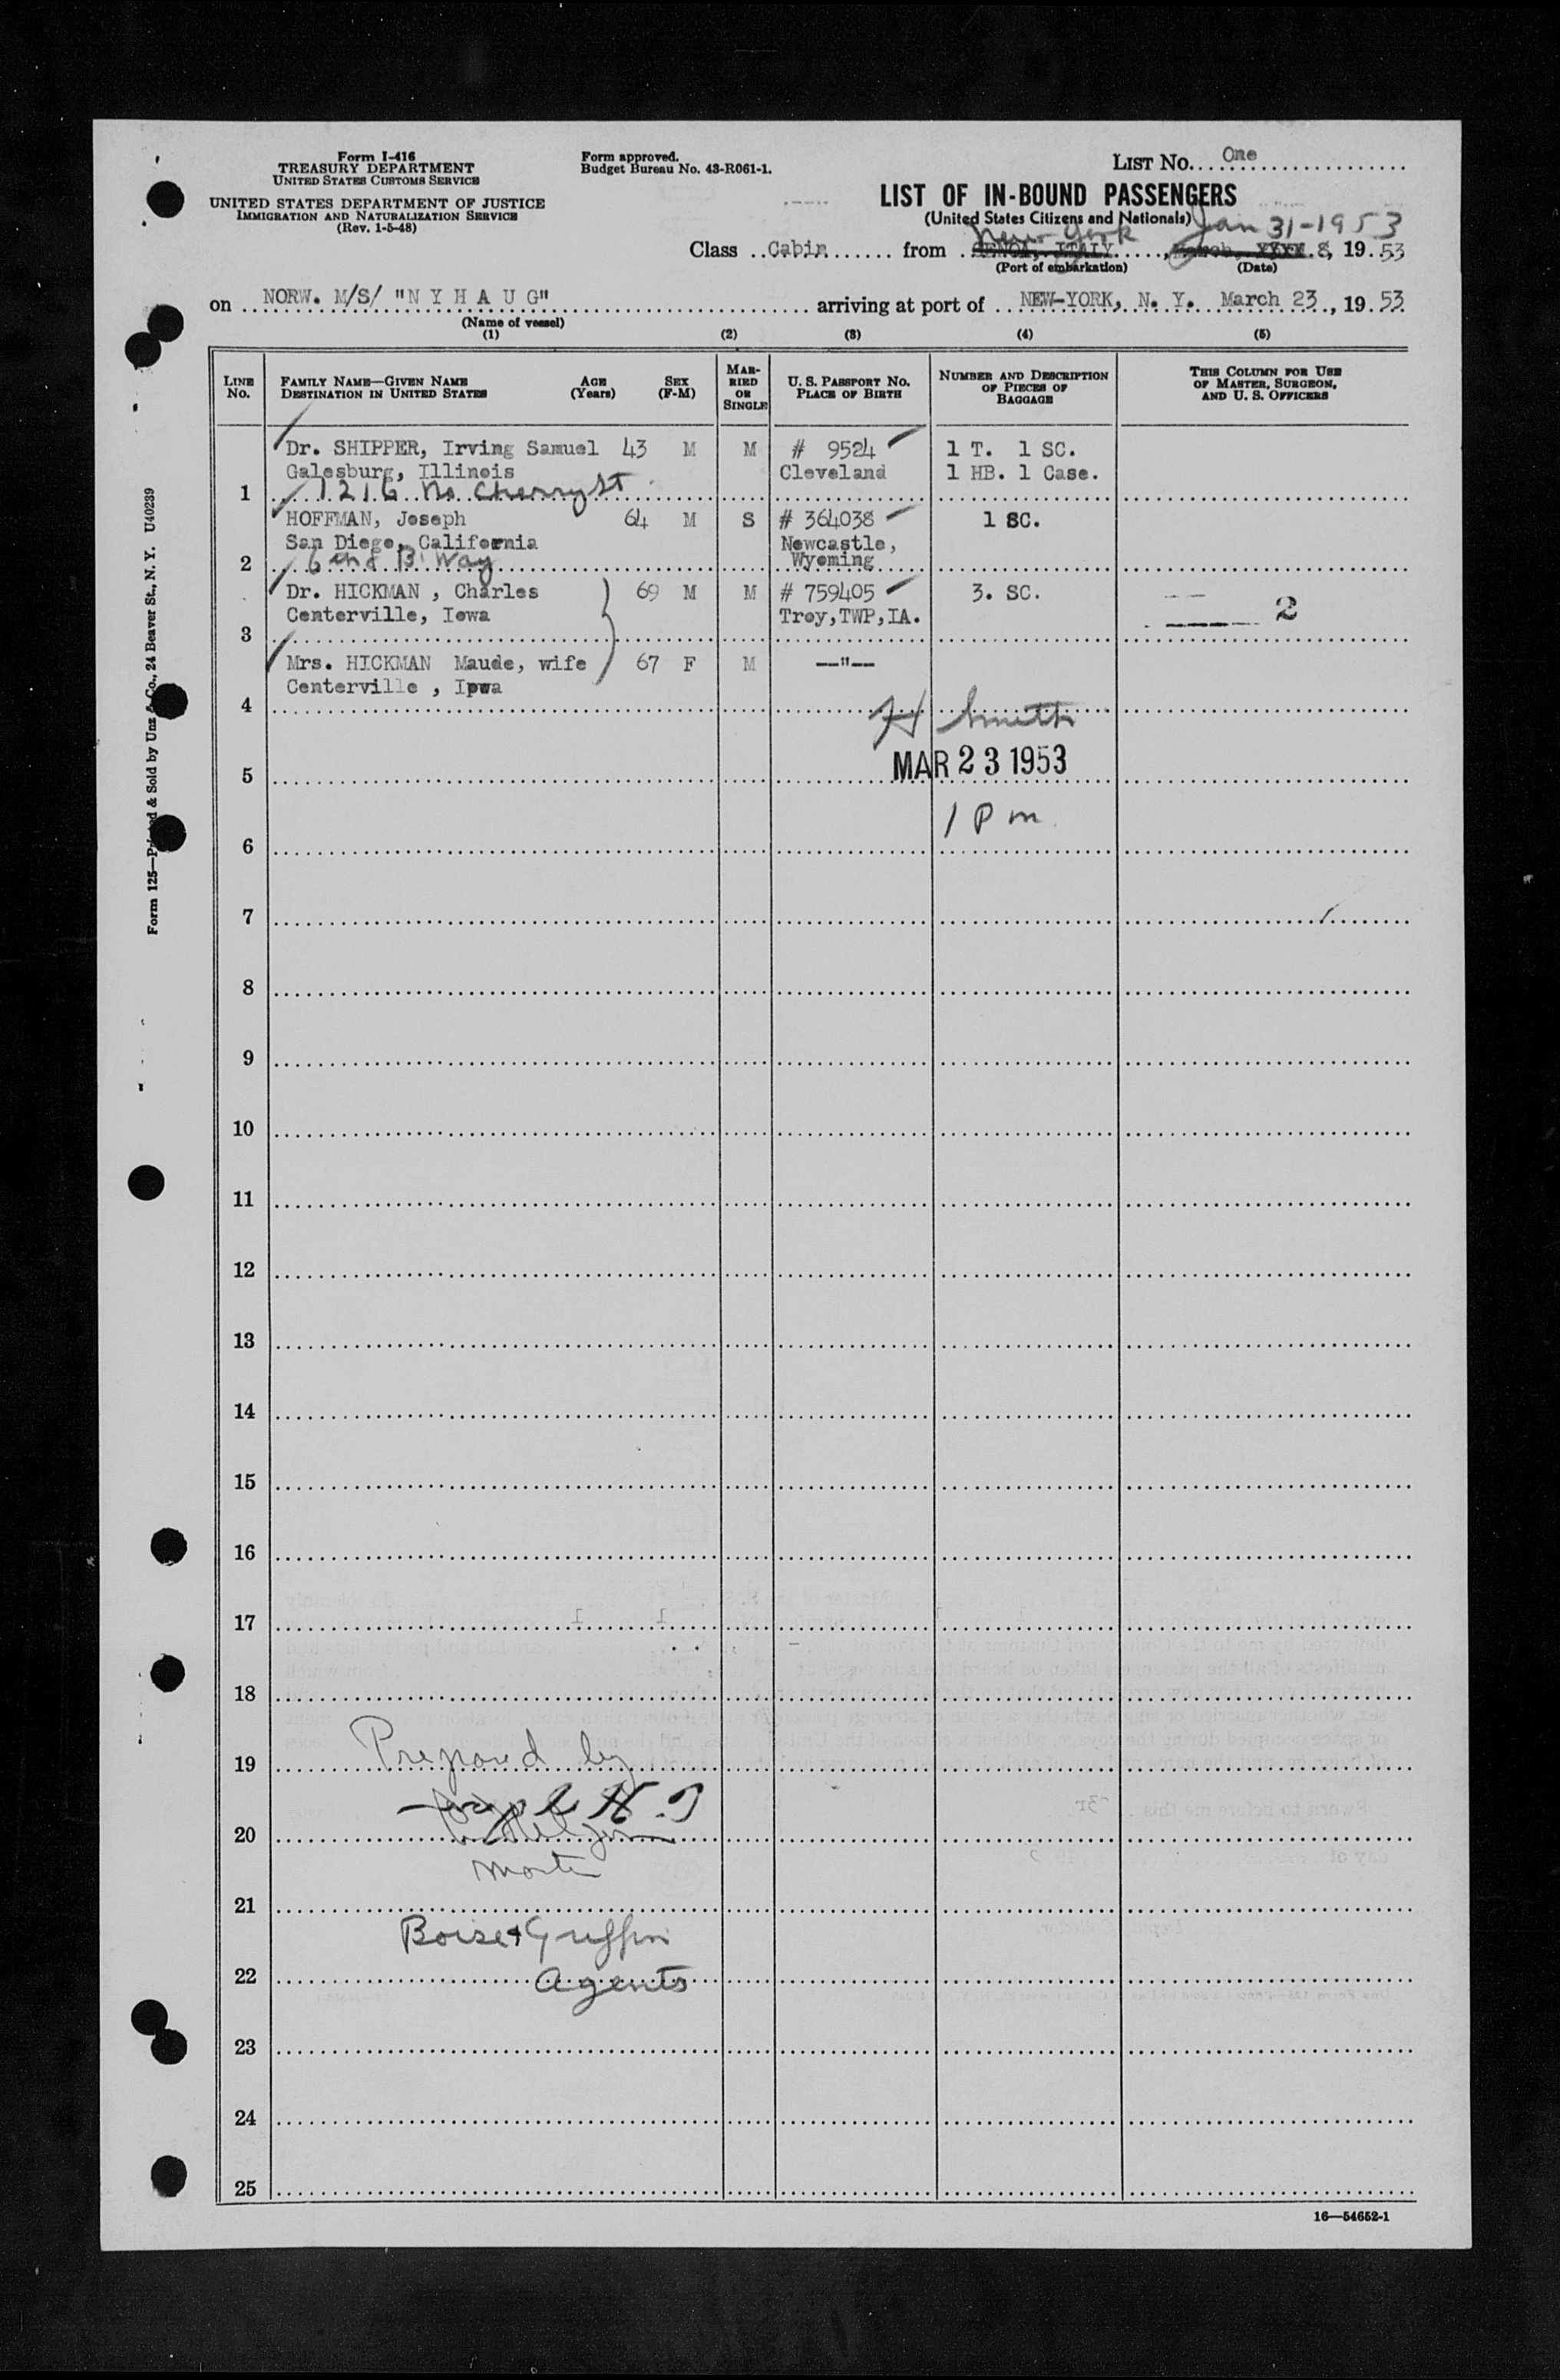 Form I-416
TREASURY DEPARTMENT
UNITED STATES CUSTOMS SERVICE
UNITED STATES DEPARTMENT OF JUSTICE
IMMIGRATION AND NATURALIZATION SERVICE
(Rev. 1-5-48)
Form approved.
Budget Bureau No. 43-R061-1.
LIST NO. One
LIST OF IN-BOUND PASSENGERS
(United States Citizens and Nationals) Jan 31-1953
New York
Class Cabin from GENOA, ITALY, March, XXXX 8, 19 53
(Port of embarkation) (Date)
on NORW. M/S/ "N Y H A U G" arriving at port of NEW-YORK, N. Y. March 23, 19 53
(Name of vessel)
(1) (2) (3) (4) (5)
LINE NO. FAMILY NAME—GIVEN NAME DESTINATION IN UNITED STATES AGE (Years) SEX (F-M) MARRIED OR SINGLE U. S. PASSPORT NO. PLACE OF BIRTH NUMBER AND DESCRIPTION OF PIECES OF BAGGAGE THIS COLUMN FOR USE OF MASTER, SURGEON, AND U. S. OFFICERS
Dr. SHIPPER, Irving Samuel 43 M M # 9524 1 T. 1 SC.
Galesburg, Illinois Cleveland 1 HB. 1 Case.
1 1216 No Cherry St
HOFFMAN, Joseph 64 M S # 364038 1 SC.
San Diego, California Newcastle,
2 6 and B' Way Wyoming
Dr. HICKMAN , Charles 69 M M # 759405 3. SC.
Centerville, Iowa Troy,TWP,IA. 2
3
Mrs. HICKMAN Maude, wife 67 F M --"--
Centerville , Iowa
4
H Smith
5 MAR 23 1953
1 P m
6
7
8
9
10
11
12
13
14
15
16
17
18
Prepared by
19
20
21
Boise & Griffin
22 Agents
23
24
25
16—54652-1
Form 125—Printed & Sold by Unz & Co., 24 Beaver St., N. Y. U40239